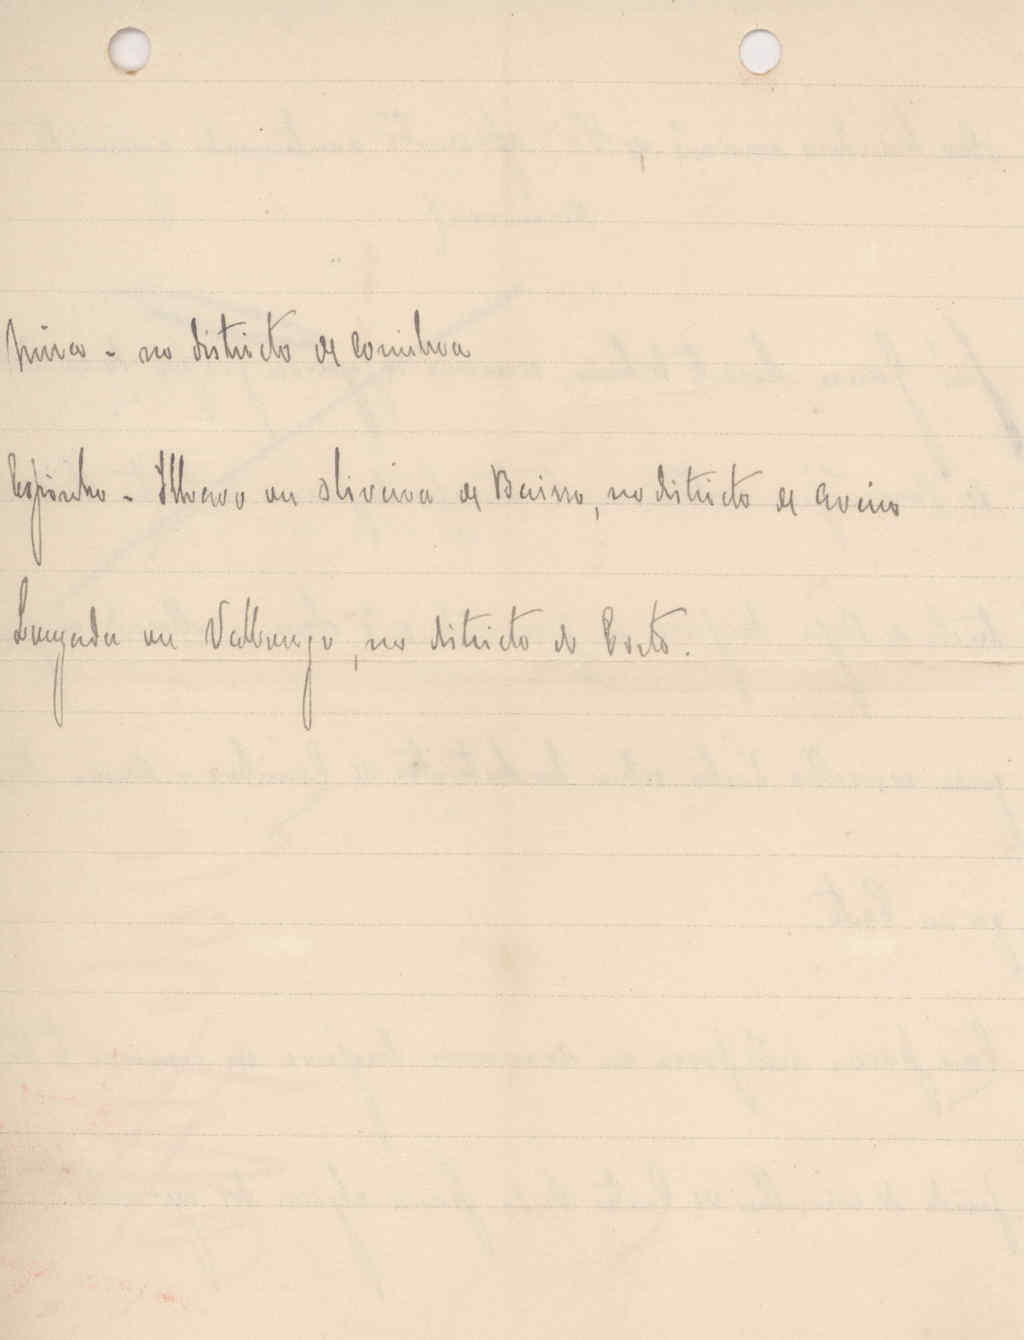 Mira - no districto de Coimbra
Espinho - Ilhavo ou Oliveira de Bairro, no districto de Aveiro
Louzada ou Vallongo, no districto do Porto.